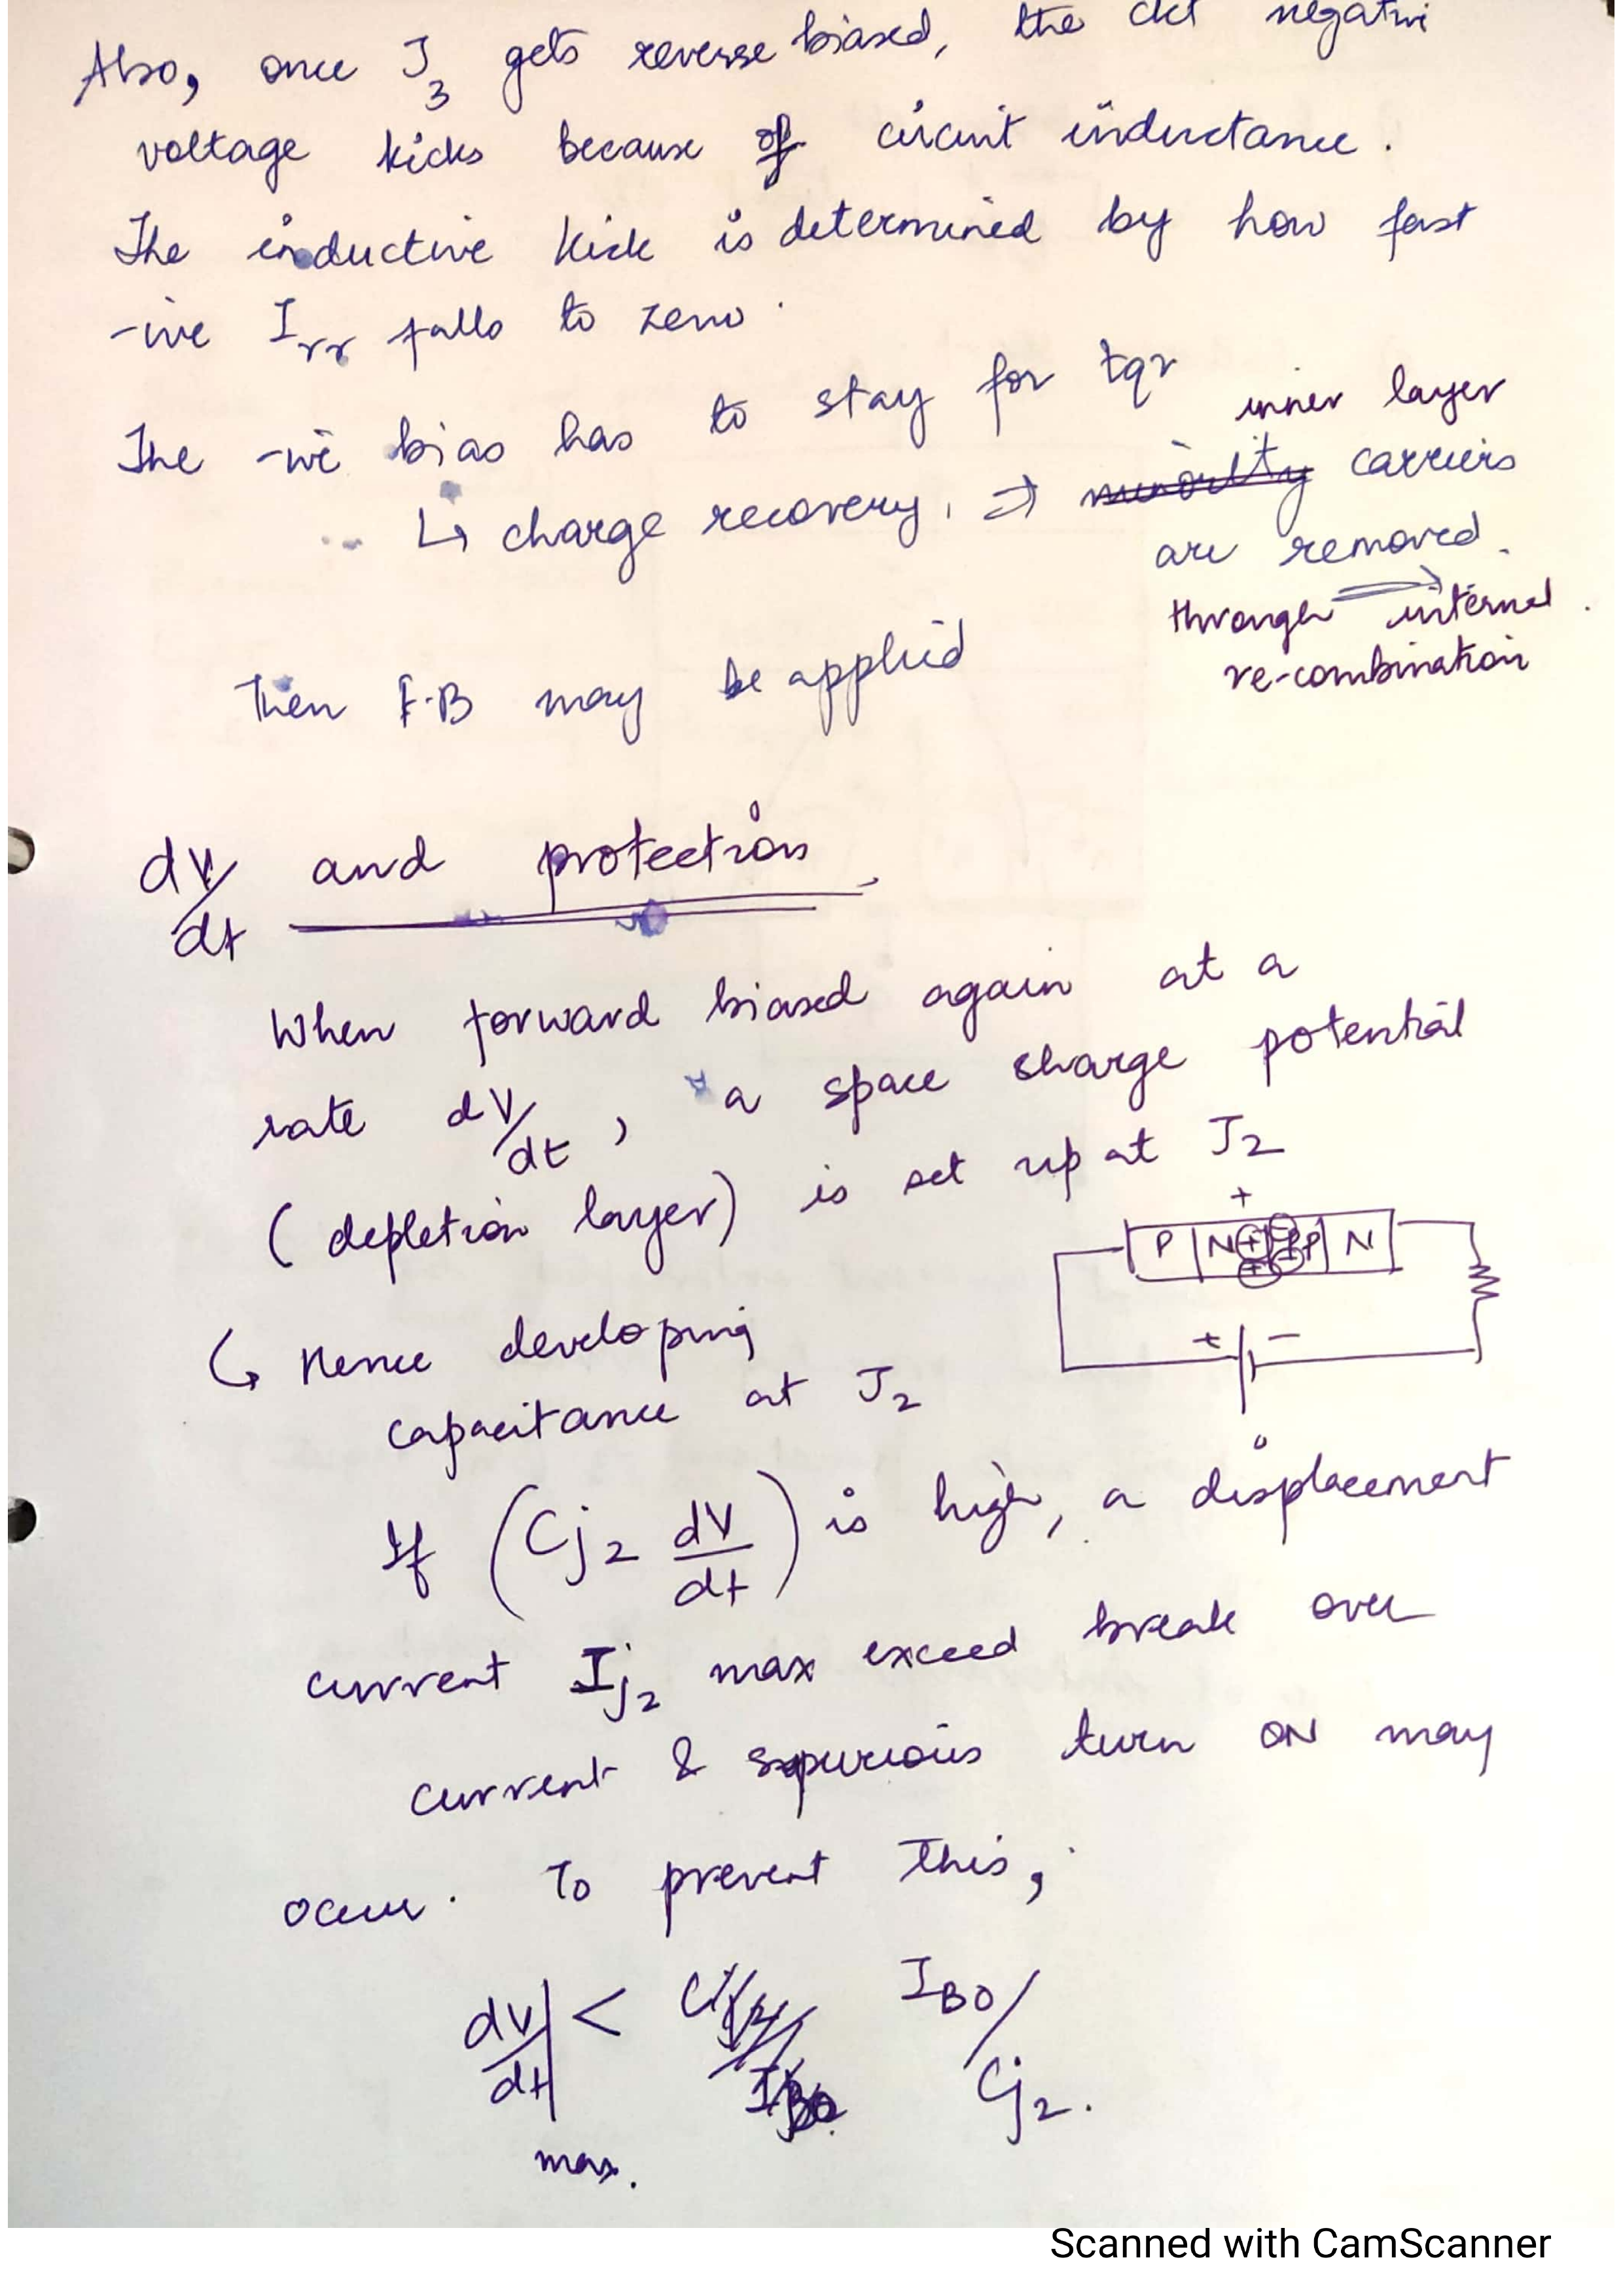 Also, once J3 gets reverse biased, the ckt negative
voltage kicks because of circuit inductance.
The inductive kick is determined by how fast
-ive Irr falls to zero.
The -ive bias has to stay for tqr
inner layer
↳ charge recovery, ⇒ minority carriers
are removed.
through internal
re-combination
Then F.B may be applied
dV/dt and protection
When forward biased again at a
rate dV/dt, a space charge potential
(depletion layer) is set up at J2
+
P N + + - - P N
+ -
↳ Hence developing
capacitance at J2
If (Cj2 dV/dt) is high, a displacement
current Ij2 max exceed break over
current & spurious turn ON may
occur. To prevent this,
dV/dt| < Cj2/IBO IBO/Cj2.
max.
Scanned with CamScanner